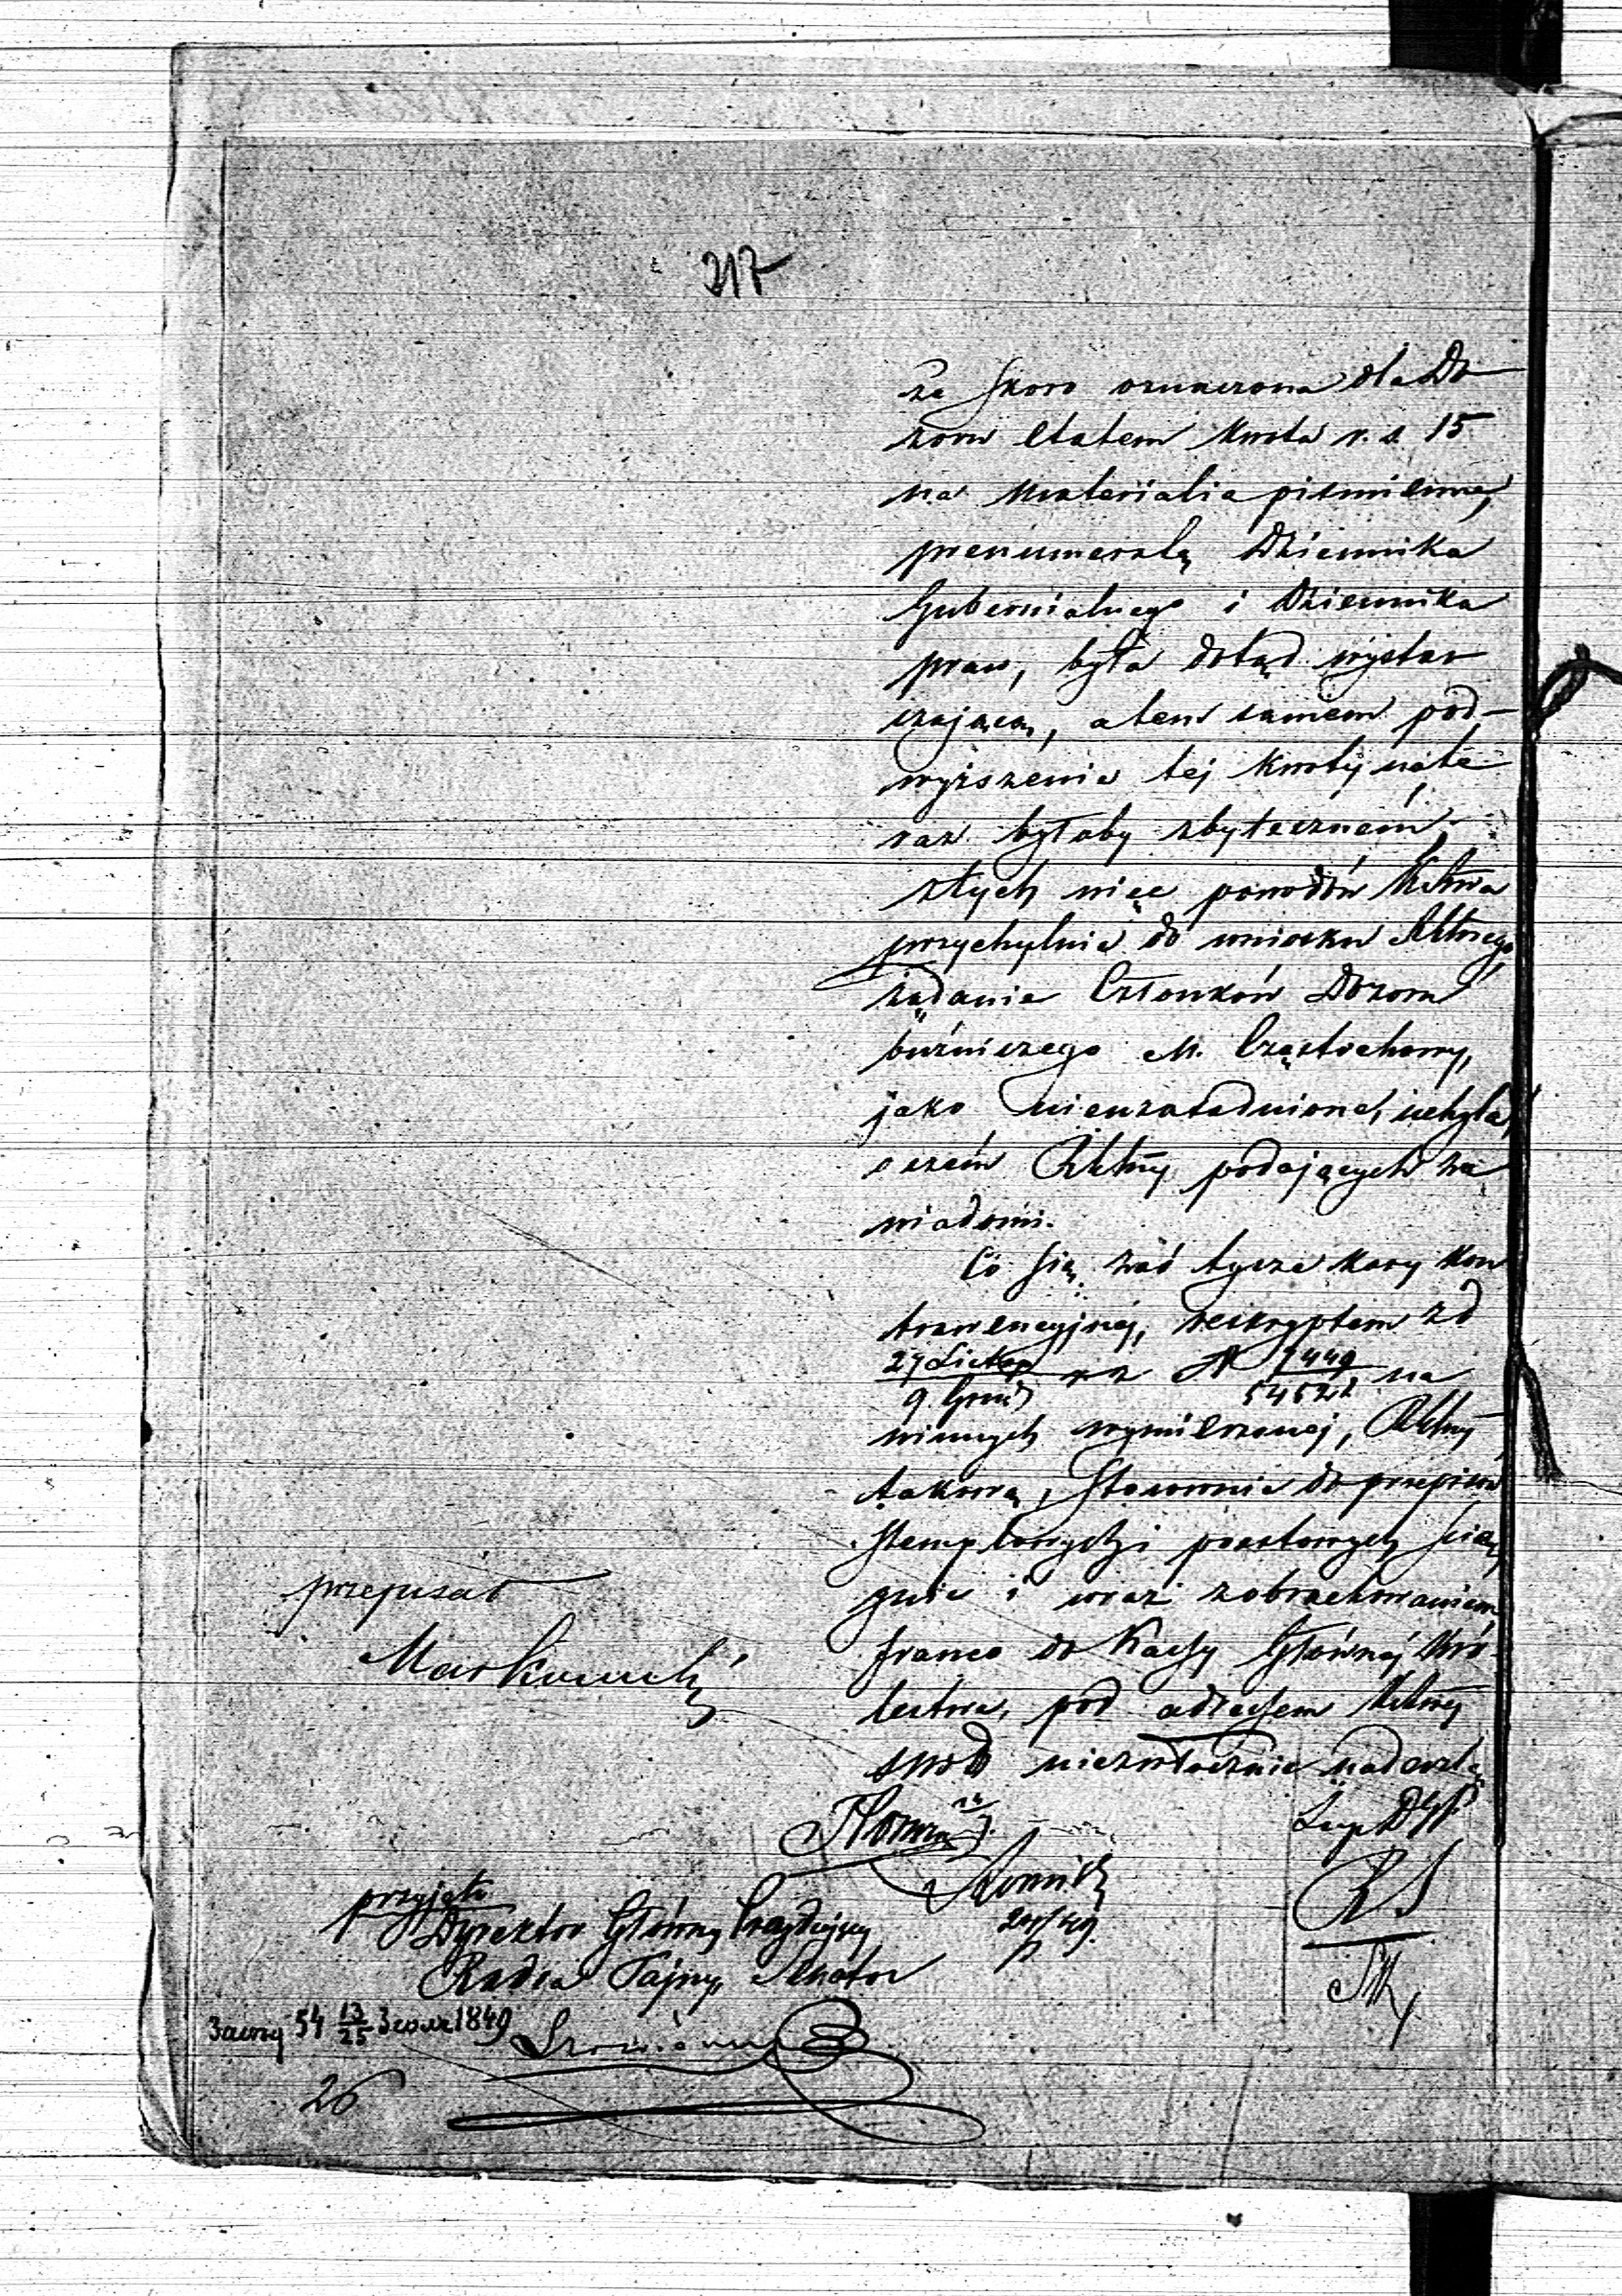 217
że skoro oznaczona dla Do
zoru etatem kwota r. s. 15
na materialia piśmienne,
prenumeratę Dziennika
Gubernialnego i Dziennika
praw, była dotąd wystar
czającą, a tem samem pod-
wyższenie tej kwoty na te
raz byłoby zbytecznem,
z tych więc powodów
przychylnie do wniosku
żądanie Członków Dozoru
bużniczego M. Częstochowy,
jako nieuzasadnione, uchyla,
o czém podających za
wiadomi.
Co się zaś tycze kary kon
trawencyjnéj, reskryptem z d
27 Listop / 9 Grud na
winnych wymierzonej,
takową, stosownie do przepisów
stemplowych i pocztowych ścią
gnie i wraz z obrachowaniem
franco do Kassy Głównéj Kró
lestwa, pod adressem
niezwłocznie nadeszle
przepisał
Markowski
przyjęto
Dyrektor Główny Prezydujący
Radca Tajny, Senator
54 13/25 1849
26